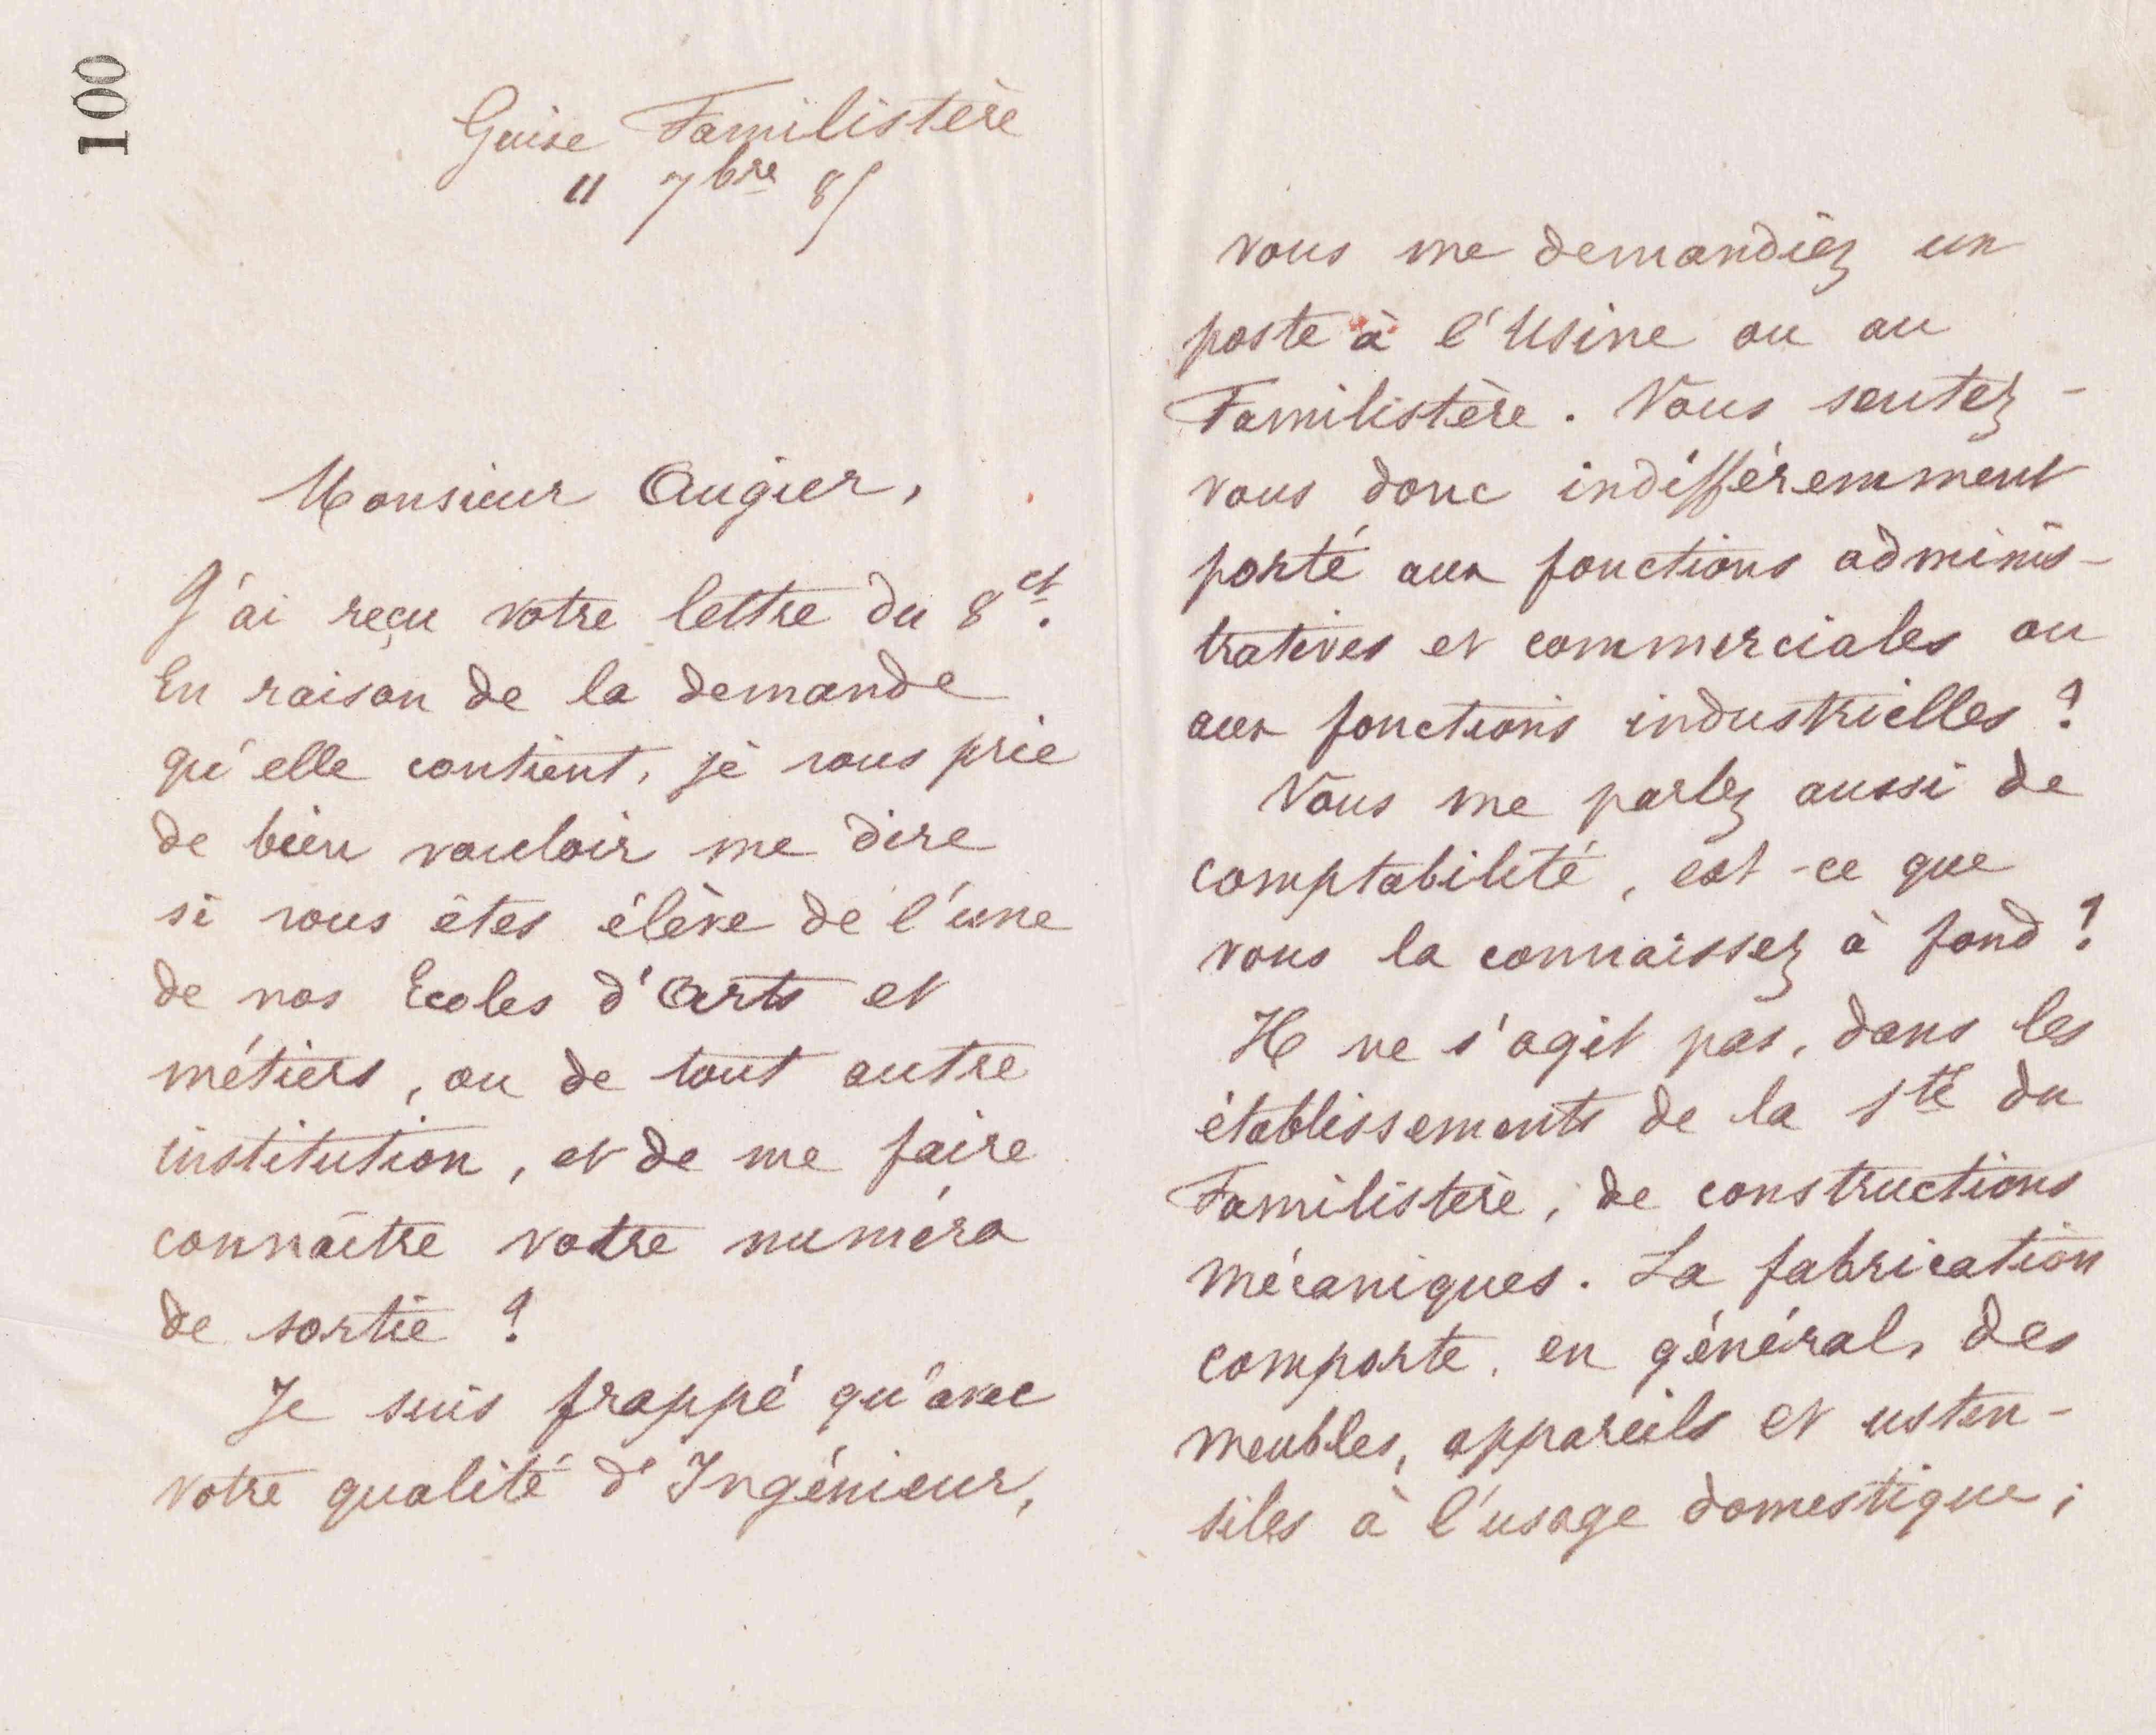 100
Guise Familistère
11 7bre 85
Monsieur Augier,
J'ai reçu votre lettre du 8 ct.
En raison de la demande
qu'elle contient, je vous prie
de bien vouloir me dire
si vous êtes élève de l'une
de nos Ecoles d'Arts et
métiers, ou de tout autre
institution, et de me faire
connaître votre numéro
de sortie ?
Je suis frappé qu'avec
votre qualité d'Ingénieur,
vous me demandiez un
poste à l'Usine ou au
Familistère. Vous sentez-
vous donc indifféremment
porté aux fonctions adminis-
tratives et commerciales ou
aux fonctions industrielles ?
Vous me parlez aussi de
comptabilité, est-ce que
vous la connaissez à fond ?
Il ne s'agit pas, dans les
établissements de la Sté du
Familistère, de constructions
mécaniques. La fabrication
comporte, en général, des
meubles, appareils et usten-
siles à l'usage domestique ;